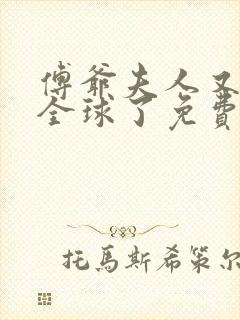 傅爺夫人又
全球了免費
托馬斯希策尔